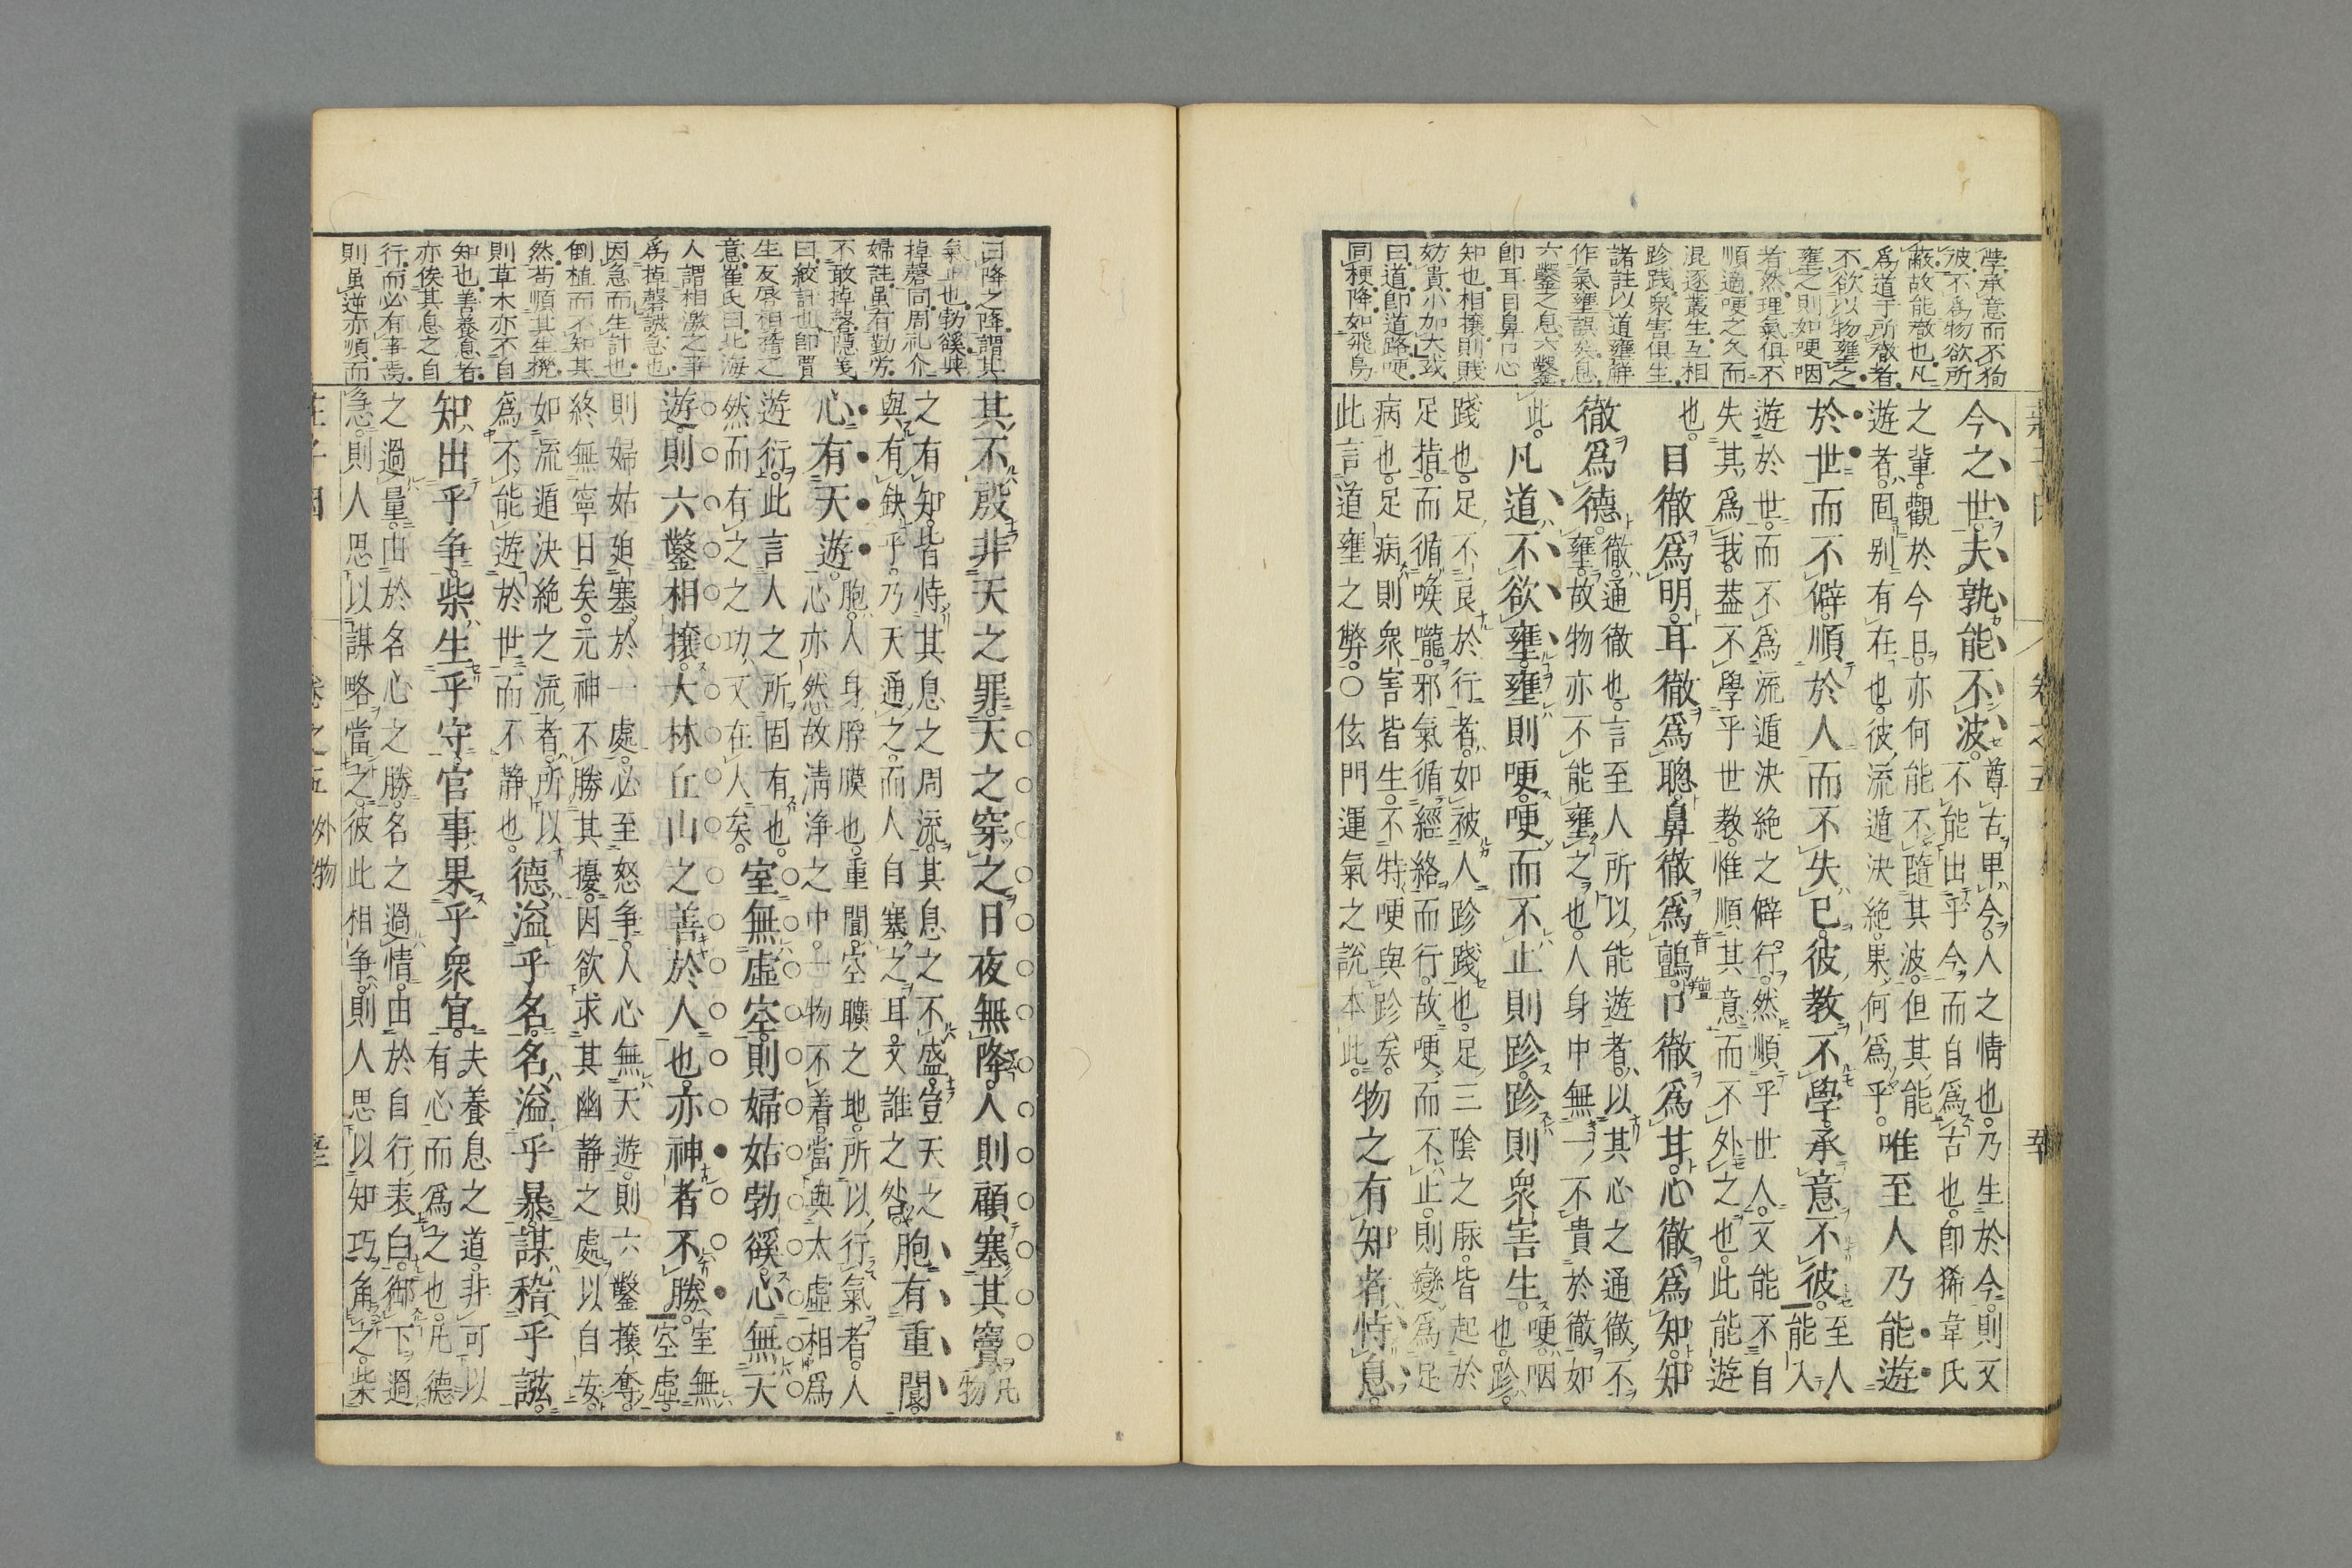 學承意而不狥
彼不爲物欲所
蔽故能徹也凡
爲道于所徹者
不欲以物壅之
壅之則如哽咽
者然理氣俱不
順適哽之久而
混逐叢生互相
跈踐衆害俱生
諸註以道壅解
作氣壅誤矣息
六鑿之息六鑿
卽耳目鼻口心
知也相攘則賤
妨貴小加大或
曰道卽道路哽
同梗降如飛鳥
今之世夫孰能不波尊古卑今人之情也乃生於今則又
不能出乎今而自爲古也卽狶韋氏
之輩觀於今日亦何能不隨其波但其能
遊者固別有在也彼流遁決絕果何爲乎唯至人乃能遊
於世而不僻順於人而不失已彼教不學承意不彼至人
能入
遊於世而不爲流遁決絕之僻行然順乎世人又能不自
失其爲我葢不學乎世教惟順其意而不外之也此能遊
也目徹爲明耳徹爲聰鼻徹爲顫口徹爲甘心徹爲知知
徹爲德徹通徹也言至人所以能遊者以其心之通徹不
壅故物亦不能壅之也人身中無一不貴於徹如
此凡道不欲壅壅則哽哽而不止則跈跈則衆害生哽咽
也跈
踐也足不良於行者如被人跈踐也足三陰之脉皆起於
足指而循喉嚨邪氣循經絡而行故哽而不止則變爲足
病也足病則衆害皆生不特哽與跈矣
此言道壅之弊○伭門運氣之說本此物之有知者恃息
莊子因
卷之五
曰降之降謂其
氣止也勃豀與
掉磬同周礼介
婦註雖有勤劳
不敢掉磬隱義
曰絞訐也卽賈
生反唇相稽之
意崔氏曰北海
人謂相激之事
爲掉磬誠急也
因急而生計也
倒植而不知其
然苟順其生機
則草木亦不自
知也善養息者
亦俟其息之自
行而必有事焉
則虽逆亦順而
其不殷非天之罪天之穿之日夜無降人則顧塞其竇凡
物
之有知皆恃其息之周流其息之不盛豈天之
與有缺乎乃天通之而人自塞之耳又誰之咎胞有重閬
胞人身脬膜也重閬空曠之地所以行氣者人
心有天遊心亦然故清浄之中一物不着當與太虛相爲
遊衍此言人之所固有也
然而有之之功又在人矣室無虛空則婦姑勃豀心無天
遊則六鑿相攘大林丘山之善於人也亦神者不勝室無
空虛
則婦姑廹塞於一處必至怒争人心無天遊則六鑿攘奪
終無寧日矣元神不勝其擾因欲求其幽静之處以自安
如流遁決絕之流者所以
爲不能遊於世而不静也德溢乎名名溢乎暴謀稽乎誸
知出乎争柴生乎守官事果乎衆宜夫養息之道非可以
有心而爲之也凡德
之過量由於名心之勝名之過情由於自行表白御下過
急則人思以謀略當之彼此相争則人思以知巧角之柴
外物